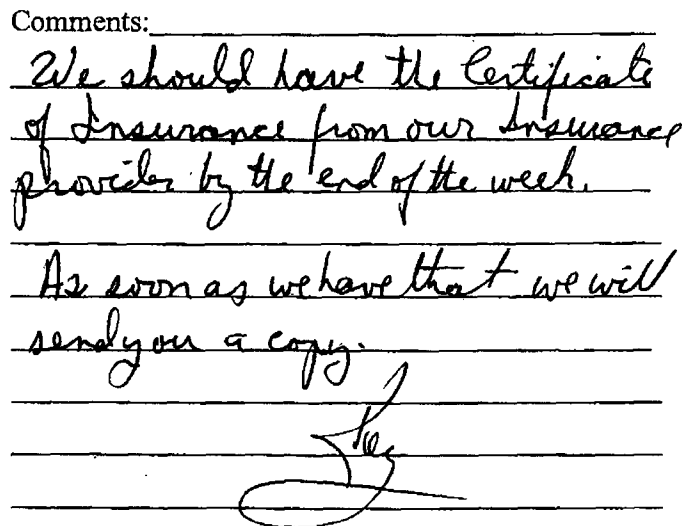 Comments:
We should have the Certificate
of Insurance from our Insurance
provider by the end of the week.
As soon as we have that we will
send you a copy.